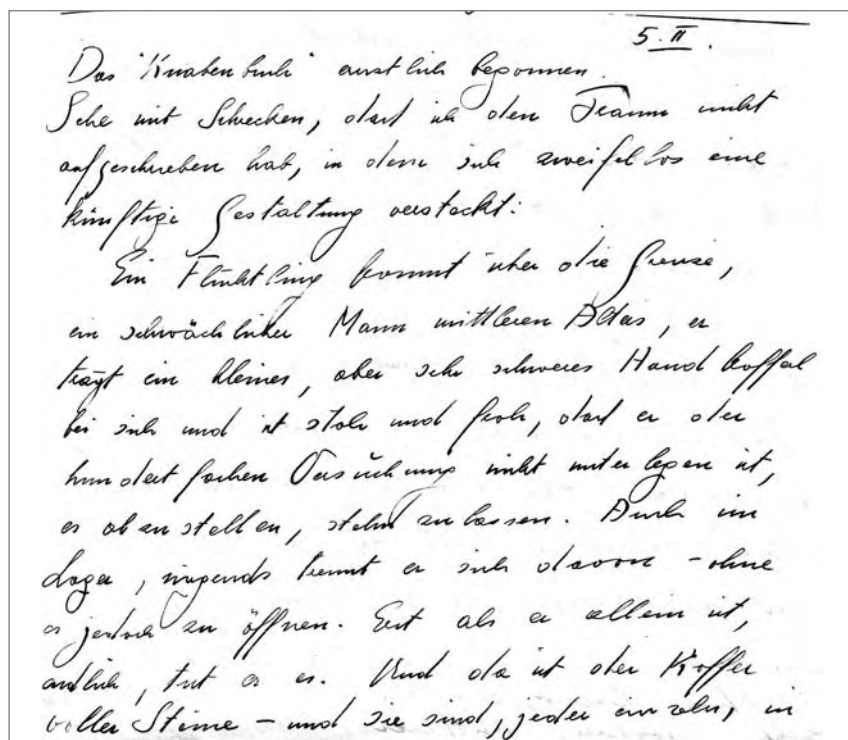 5.II.
Das "Knabenbuch" ernstlich begonnen.
Sehe mit Schrecken, daß ich den Traum nicht
aufgeschrieben hab, in dem sich zweifellos eine
künftige Gestaltung versteckt:
Ein Flüchtling kommt über die Grenze,
ein schwächlicher Mann mittleren Alters, er
trägt ein kleines, aber sehr schweres Handkofferl
bei sich und ist stolz und froh, daß er der
hundertfachen Versuchung nicht unterlegen ist,
es abzustellen, stehn zu lassen. Auch im
Lager, nirgends trennt er sich davon – ohne
es jedoch zu öffnen. Erst als er allein ist,
endlich, tut er es. Und da ist der Koffer
voller Steine – und sie sind, jeder einzeln, in